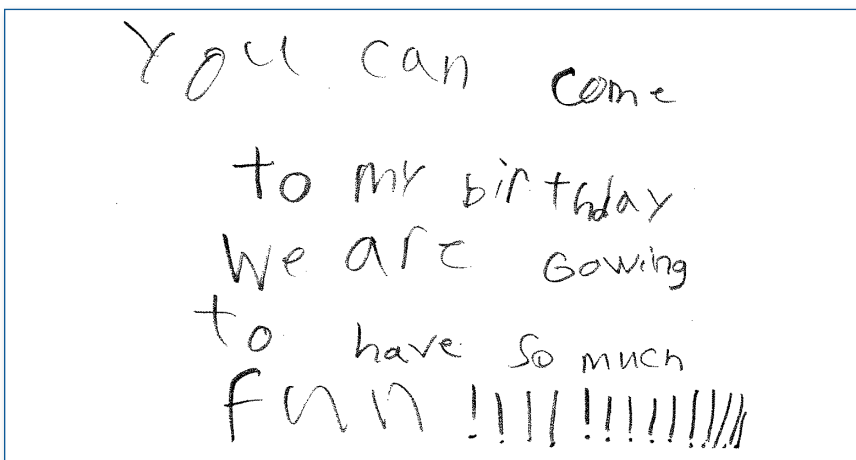 You can come
to my birthday
We are Gowing
to have so much
fun !!!!!!!!!!!!!!!